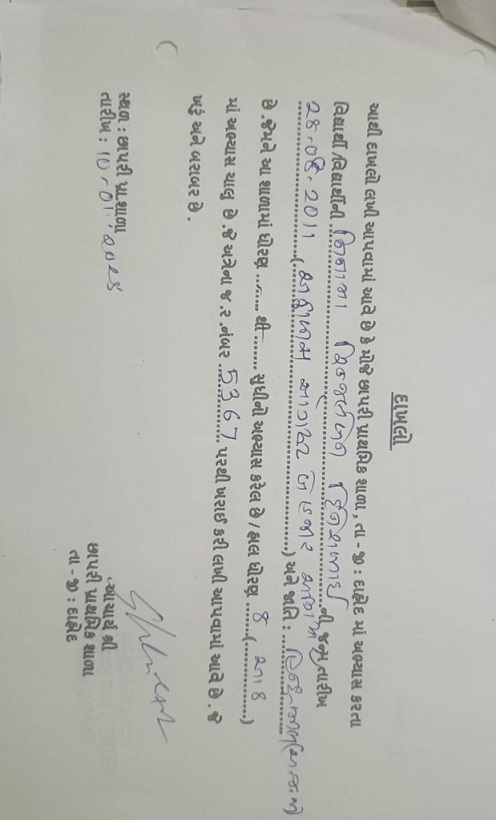 દાખલો
આથી દાખલો લખી આપવામાં આવે છે કે મોજે છાપરી પ્રાથમિક શાળા, તા - જી : દાહોદ માં અભ્યાસ કરતા
વિદ્યાર્થી/વિદ્યાર્થીની ની જન્મ તારીખ
28.08.2011 (અઠ્ઠાવીસ ઓગસ્ટ બે હજાર અગીયાર) અને જાતિ : હિન્દુ
છે. જેમને આ શાળામાં ધોરણ ........ થી ........ સુધીનો અભ્યાસ કરેલ છે / હાલ ધોરણ 8 (આઠ)
માં અભ્યાસ ચાલુ છે. જે અત્રેના જ.ર.નંબર 5367 પરથી ખરાઈ કરી લખી આપવામાં આવે છે. જે
ખરું અને બરાબર છે.
સ્થળ : છાપરી પ્રા.શાળા
તારીખ : 10/01/2025
આચાર્ય શ્રી
છાપરી પ્રાથમિક શાળા
તા - જી : દાહોદ